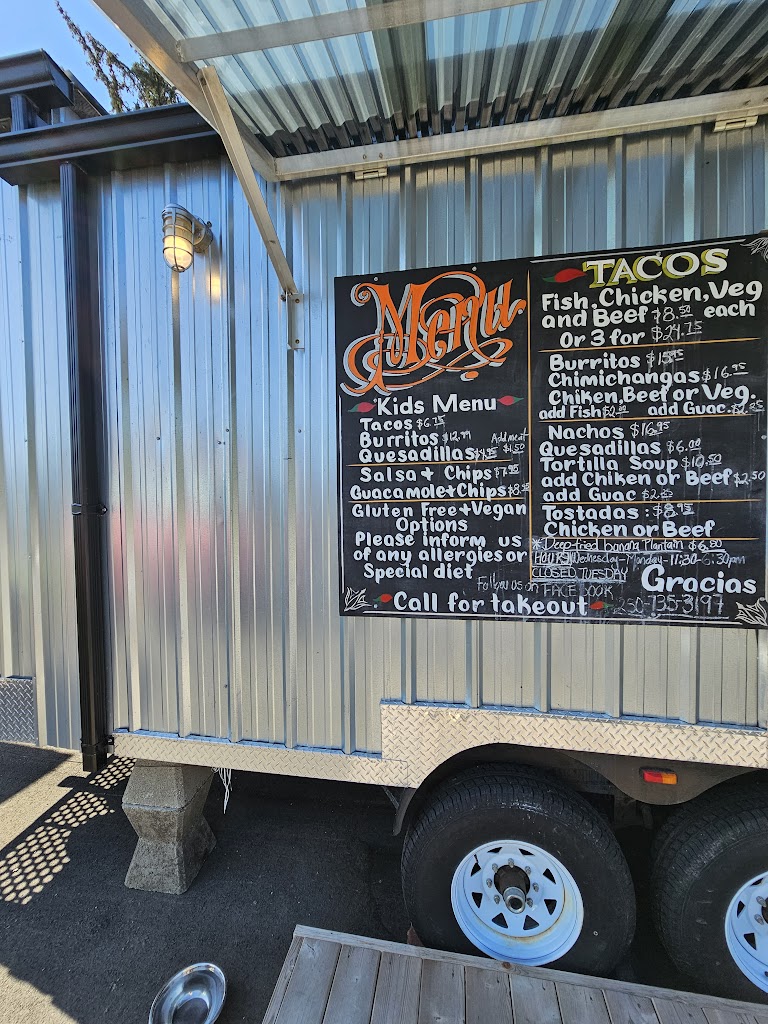 Menu
Kids Menu
Tacos $6.75
Burritos $12.99
Add meat
Quesadillas $4.95 $1.50
Salsa + Chips $7.95
Guacamole + Chips $8.95
Gluten Free + Vegan
Options
Please inform us
of any allergies or
Special diet
TACOS
Fish, Chicken, Veg
and Beef $8.50 each
Or 3 for $24.75
Burritos $15.95
Chimichangas $16.95
Chiken, Beef or Veg.
add Fish $2.00 add Guac. $2.25
Nachos $16.95
Quesadillas $6.00
Tortilla Soup $10.50
add Chiken or Beef $2.50
add Guac $2.25
Tostadas: $8.95
Chicken or Beef
* Deep-fried banana Plantain $6.50
HOURS Wednesday-Monday-11:30-6:30pm
CLOSED TUESDAY
Gracias
Follow us on FACEBOOK
Call for takeout 250-735-3197